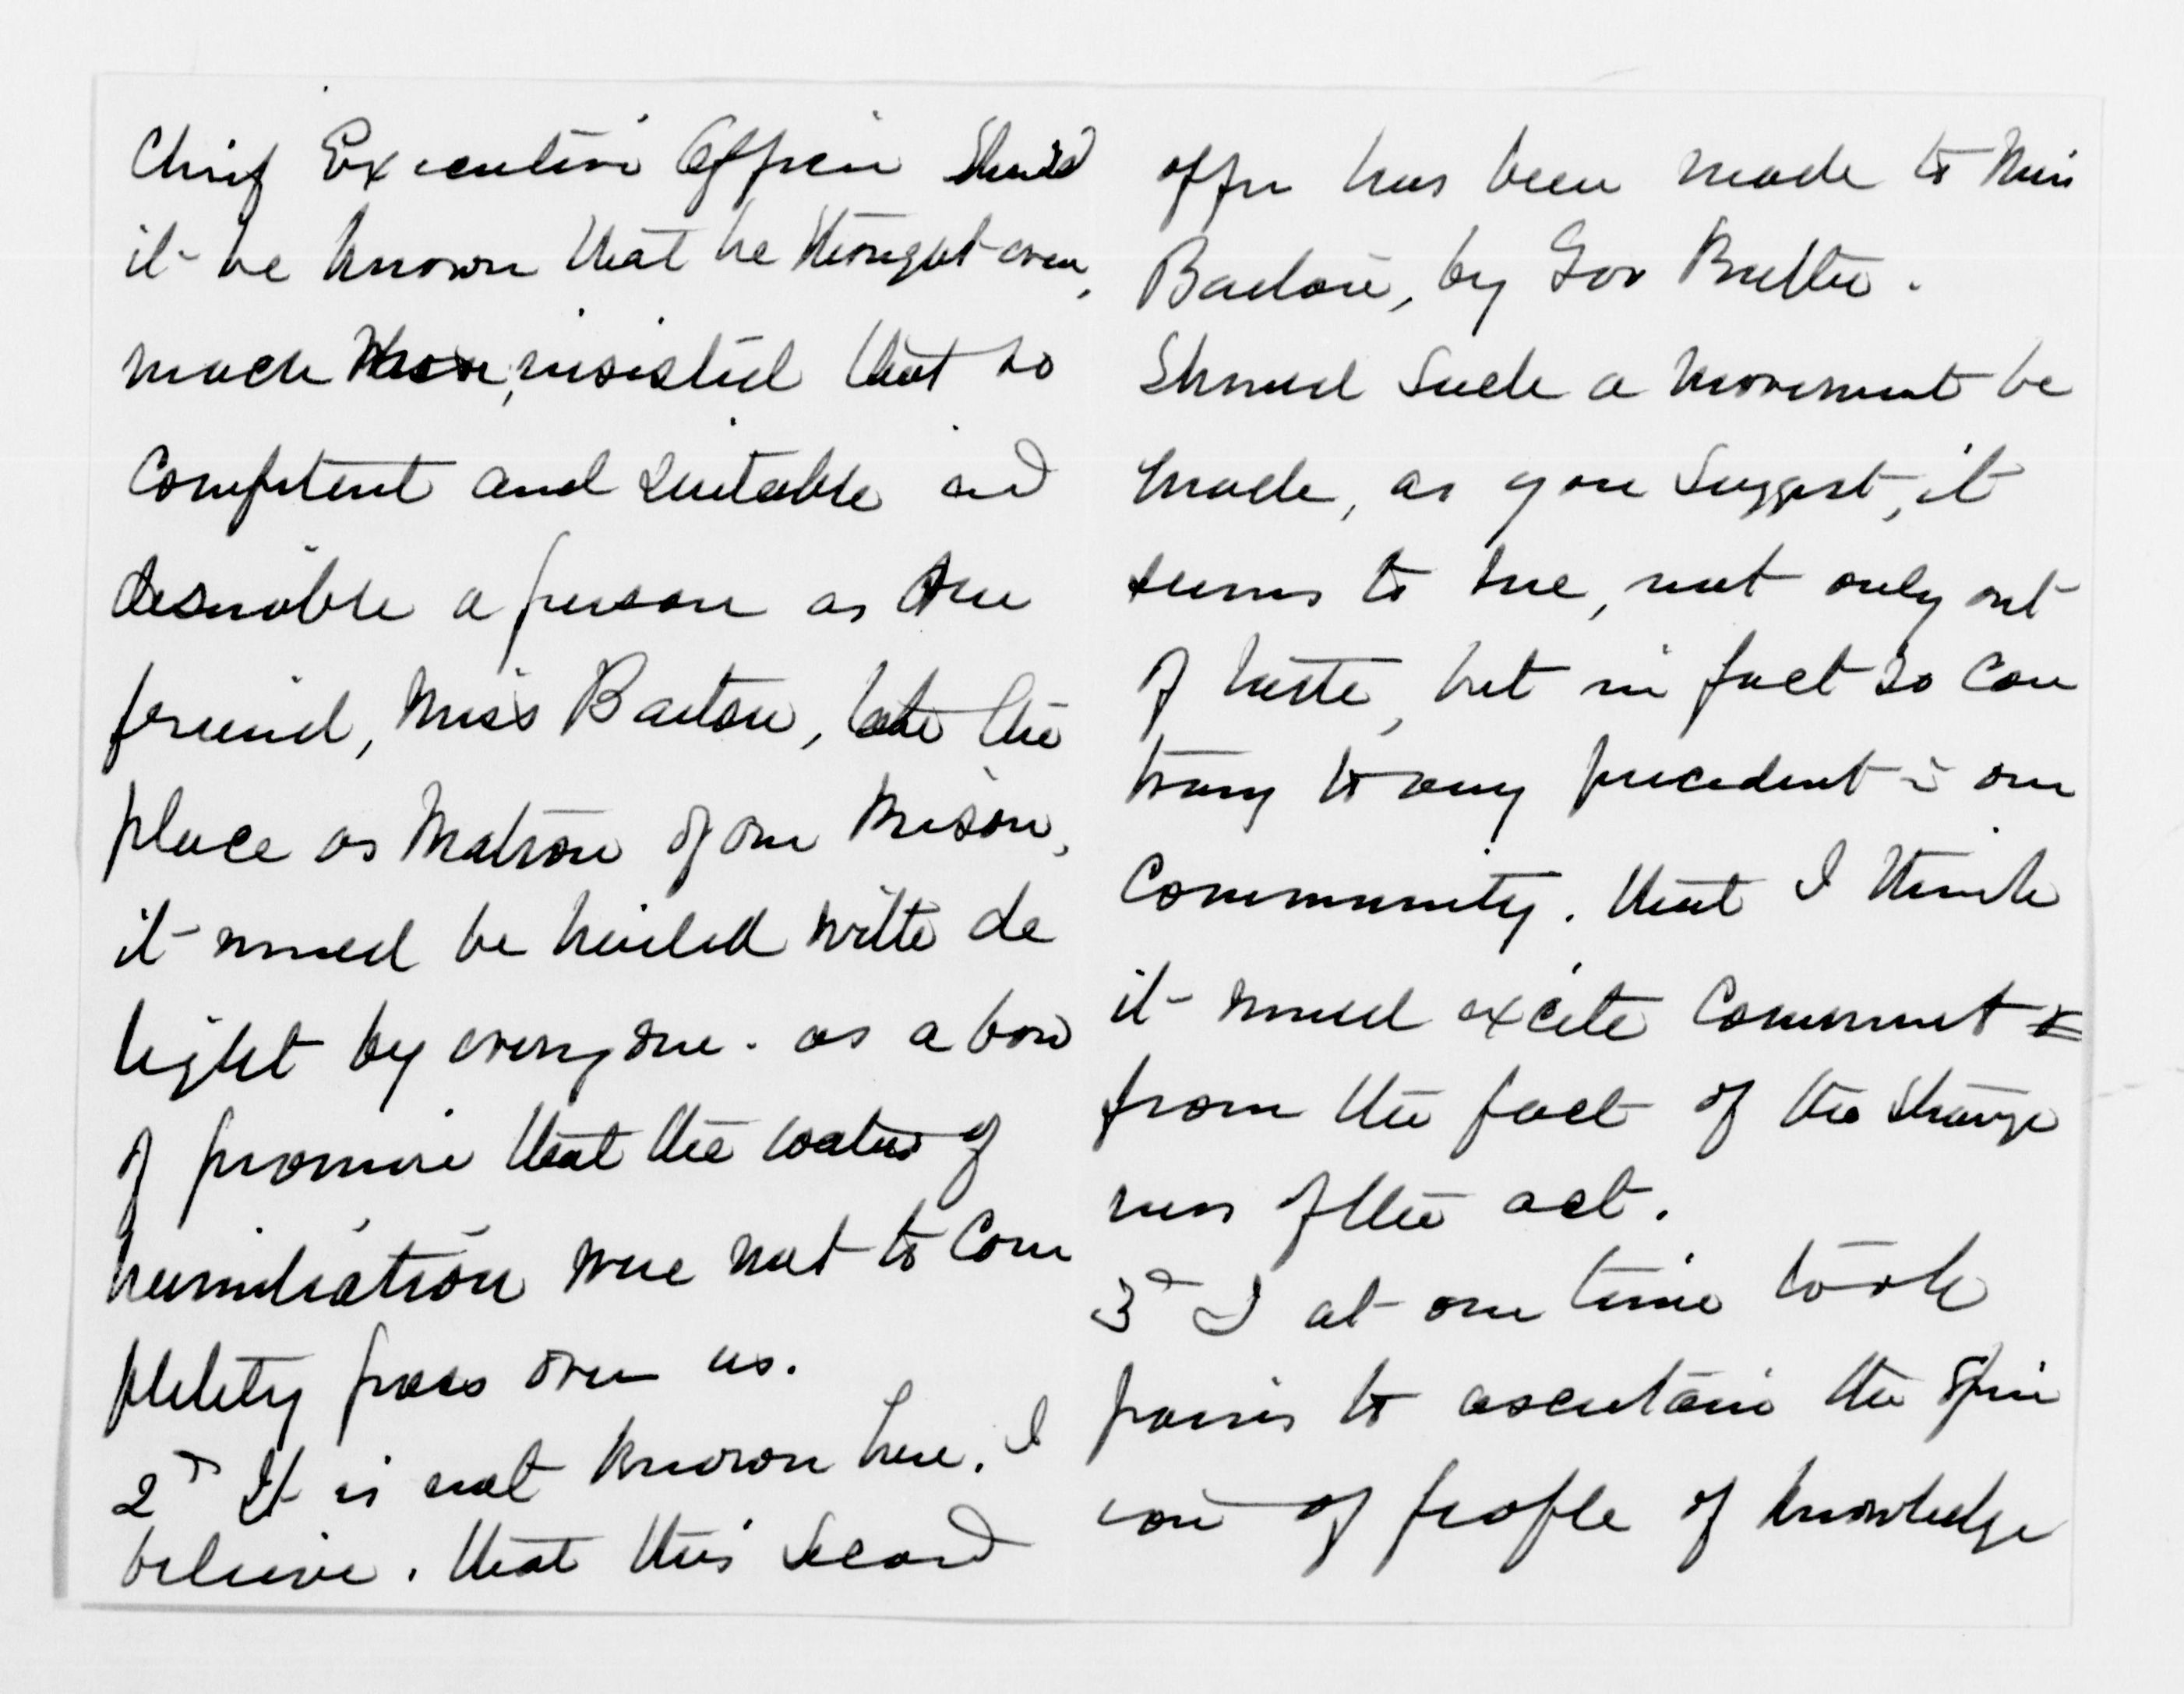 Chief Executive Officer Should
it be known that he thought even,
much more, insisted that so
Competent and suitable and
desirable a person as our
friend, Miss Barton, take the
place as Matron of our Prison,
it would be hailed with de
light by everyone. as a bow
of promise that the waters of
humiliation were not to Com
pletely pass over us.
2d It is not known here. I
believe. that this Second
offer has been made to Miss
Barton, by Gov Butler.
Should Such a movement be
made, as you Suggest, it
seems to me, not only out
of taste, but in fact so Con
trary to any precedent in our
Community. that I think
it would excite Comment
from the fact of the Strange
ness of the act.
3d I at one time took
pains to ascertain the Opin
ion of people of knowledge